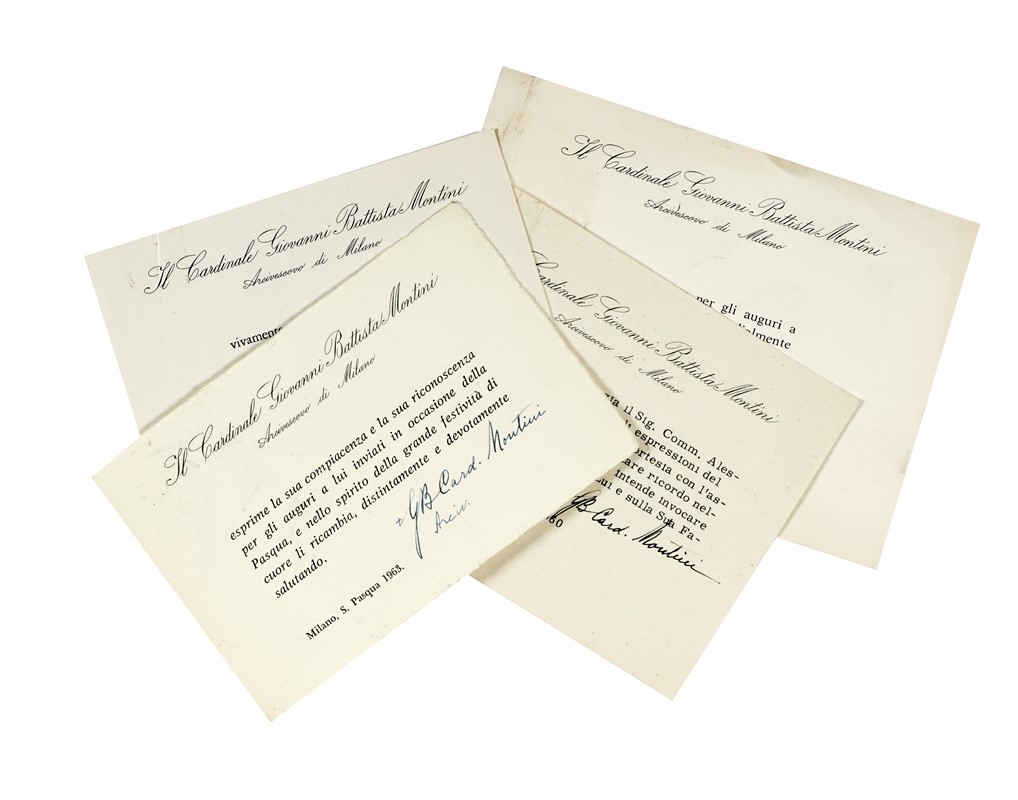 Il Cardinale Giovanni Battista Montini
Arcivescovo di Milano
per gli auguri a
Il Cardinale Giovanni Battista Montini
Arcivescovo di Milano
vivamente
Cardinale Giovanni Battista Montini
Arcivescovo di Milano
il Sig. Comm. Ales-
espressioni del
con l'as-
ricordo nel-
intende invocare
e sulla Sua Fa-
GB Card. Montini
Il Cardinale Giovanni Battista Montini
Arcivescovo di Milano
esprime la sua compiacenza e la sua riconoscenza
per gli auguri a lui inviati in occasione della
Pasqua, e nello spirito della grande festività di
cuore li ricambia, distintamente e devotamente
salutando.
+ GB Card. Montini
Arciv.
Milano, S. Pasqua 1963.